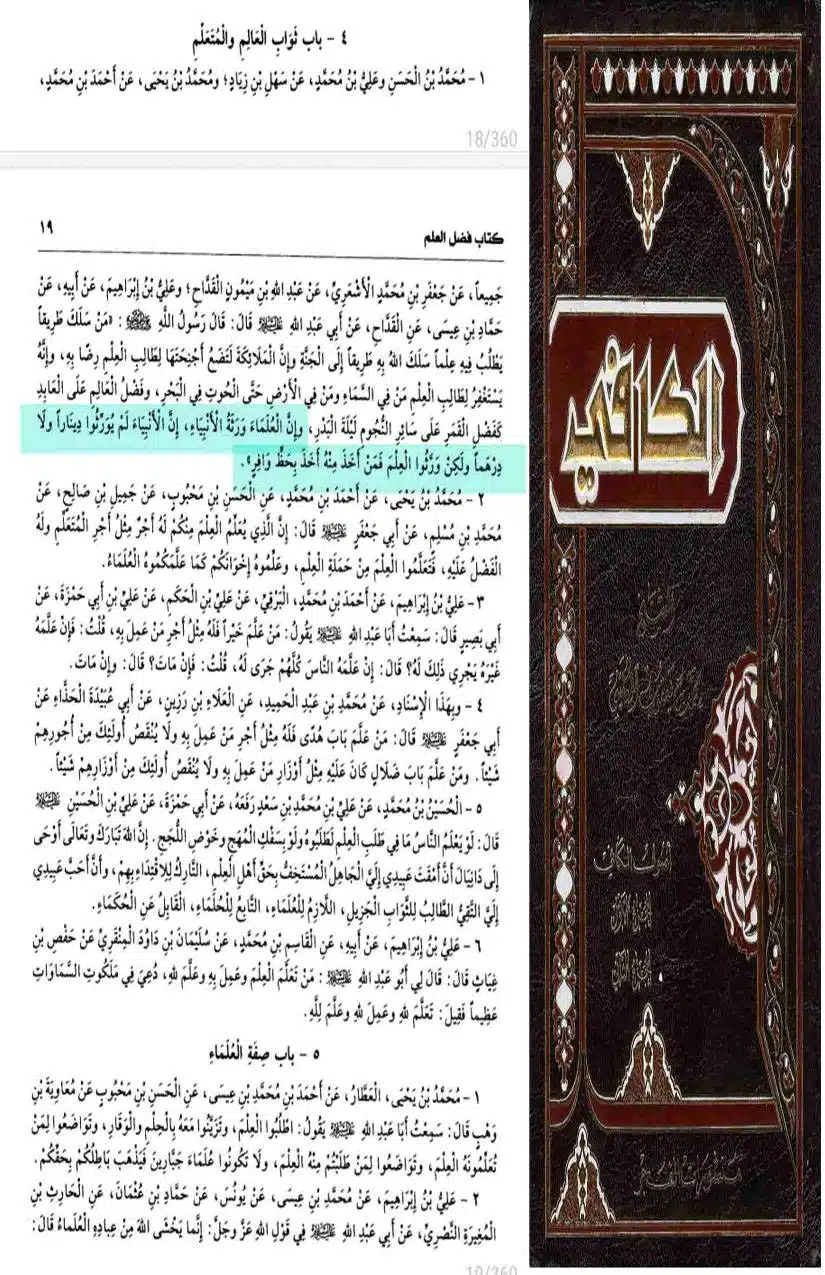 ٤ - باب ثَوَابِ الْعَالِمِ والْمُتَعَلِّمِ
١ - مُحَمَّدُ بْنُ الْحَسَنِ وعَلِيُّ بْنُ مُحَمَّدٍ، عَنْ سَهْلِ بْنِ زِيَادٍ؛ ومُحَمَّدُ بْنُ يَحْيَى، عَنْ أَحْمَدَ بْنِ مُحَمَّدٍ،
18/360
كتاب فضل العلم ١٩
جَمِيعاً، عَنْ جَعْفَرِ بْنِ مُحَمَّدٍ الْأَشْعَرِيِّ، عَنْ عَبْدِ اللهِ بْنِ مَيْمُونٍ الْقَدَّاحِ؛ وعَلِيُّ بْنُ إِبْرَاهِيمَ، عَنْ أَبِيهِ، عَنْ
حَمَّادِ بْنِ عِيسَى، عَنِ الْقَدَّاحِ، عَنْ أَبِي عَبْدِ اللهِ عليه السلام قَالَ: قَالَ رَسُولُ اللَّهِ ﷺ: «مَنْ سَلَكَ طَرِيقاً
يَطْلُبُ فِيهِ عِلْماً سَلَكَ اللهُ بِهِ طَرِيقاً إِلَى الْجَنَّةِ وإِنَّ الْمَلَائِكَةَ لَتَضَعُ أَجْنِحَتَهَا لِطَالِبِ الْعِلْمِ رِضًا بِهِ، وإِنَّهُ
يَسْتَغْفِرُ لِطَالِبِ الْعِلْمِ مَنْ فِي السَّمَاءِ ومَنْ فِي الْأَرْضِ حَتَّى الْحُوتِ فِي الْبَحْرِ، وفَضْلُ الْعَالِمِ عَلَى الْعَابِدِ
كَفَضْلِ الْقَمَرِ عَلَى سَائِرِ النُّجُومِ لَيْلَةَ الْبَدْرِ، وإِنَّ الْعُلَمَاءَ وَرَثَةُ الْأَنْبِيَاءِ، إِنَّ الْأَنْبِيَاءَ لَمْ يُوَرِّثُوا دِينَاراً ولَا
دِرْهَماً ولَكِنْ وَرَّثُوا الْعِلْمَ فَمَنْ أَخَذَ مِنْهُ أَخَذَ بِحَظٍّ وَافِرٍ».
٢ - مُحَمَّدُ بْنُ يَحْيَى، عَنْ أَحْمَدَ بْنِ مُحَمَّدٍ، عَنِ الْحَسَنِ بْنِ مَحْبُوبٍ، عَنْ جَمِيلِ بْنِ صَالِحٍ، عَنْ
مُحَمَّدِ بْنِ مُسْلِمٍ، عَنْ أَبِي جَعْفَرٍ عليه السلام قَالَ: إِنَّ الَّذِي يُعَلِّمُ الْعِلْمَ مِنْكُمْ لَهُ أَجْرٌ مِثْلُ أَجْرِ الْمُتَعَلِّمِ ولَهُ
الْفَضْلُ عَلَيْهِ، فَتَعَلَّمُوا الْعِلْمَ مِنْ حَمَلَةِ الْعِلْمِ، وعَلِّمُوهُ إِخْوَانَكُمْ كَمَا عَلَّمَكُمُوهُ الْعُلَمَاءُ.
٣ - عَلِيُّ بْنُ إِبْرَاهِيمَ، عَنْ أَحْمَدَ بْنِ مُحَمَّدٍ، الْبَرْقِيِّ، عَنْ عَلِيِّ بْنِ الْحَكَمِ، عَنْ عَلِيِّ بْنِ أَبِي حَمْزَةَ، عَنْ
أَبِي بَصِيرٍ قَالَ: سَمِعْتُ أَبَا عَبْدِ اللهِ عليه السلام يَقُولُ: مَنْ عَلَّمَ خَيْراً فَلَهُ مِثْلُ أَجْرِ مَنْ عَمِلَ بِهِ، قُلْتُ: فَإِنْ عَلَّمَهُ
غَيْرَهُ يَجْرِي ذَلِكَ لَهُ؟ قَالَ: إِنْ عَلَّمَهُ النَّاسَ كُلَّهُمْ جَرَى لَهُ، قُلْتُ: فَإِنْ مَاتَ؟ قَالَ: وإِنْ مَاتَ.
٤ - وبِهَذَا الْإِسْنَادِ، عَنْ مُحَمَّدِ بْنِ عَبْدِ الْحَمِيدِ، عَنِ الْعَلَاءِ بْنِ رَزِينٍ، عَنْ أَبِي عُبَيْدَةَ الْحَذَّاءِ عَنْ
أَبِي جَعْفَرٍ عليه السلام قَالَ: مَنْ عَلَّمَ بَابَ هُدًى فَلَهُ مِثْلُ أَجْرِ مَنْ عَمِلَ بِهِ ولَا يُنْقَصُ أُولَئِكَ مِنْ أُجُورِهِمْ
شَيْئاً. ومَنْ عَلَّمَ بَابَ ضَلَالٍ كَانَ عَلَيْهِ مِثْلُ أَوْزَارِ مَنْ عَمِلَ بِهِ ولَا يُنْقَصُ أُولَئِكَ مِنْ أَوْزَارِهِمْ شَيْئاً.
٥ - الْحُسَيْنُ بْنُ مُحَمَّدٍ، عَنْ عَلِيِّ بْنِ مُحَمَّدِ بْنِ سَعْدٍ رَفَعَهُ، عَنْ أَبِي حَمْزَةَ، عَنْ عَلِيِّ بْنِ الْحُسَيْنِ عليه السلام
قَالَ: لَوْ يَعْلَمُ النَّاسُ مَا فِي طَلَبِ الْعِلْمِ لَطَلَبُوهُ ولَوْ بِسَفْكِ الْمُهَجِ وخَوْضِ اللُّجَجِ. إِنَّ اللهَ تَبَارَكَ وتَعَالَى أَوْحَى
إِلَى دَانِيَالَ أَنَّ أَمْقَتَ عَبِيدِي إِلَيَّ الْجَاهِلُ الْمُسْتَخِفُّ بِحَقِّ أَهْلِ الْعِلْمِ، التَّارِكُ لِلِاقْتِدَاءِ بِهِمْ، وأَنَّ أَحَبَّ عَبِيدِي
إِلَيَّ التَّقِيُّ الطَّالِبُ لِلثَّوَابِ الْجَزِيلِ، اللَّازِمُ لِلْعُلَمَاءِ، التَّابِعُ لِلْحُلَمَاءِ، الْقَابِلُ عَنِ الْحُكَمَاءِ.
٦ - عَلِيُّ بْنُ إِبْرَاهِيمَ، عَنْ أَبِيهِ، عَنِ الْقَاسِمِ بْنِ مُحَمَّدٍ، عَنْ سُلَيْمَانَ بْنِ دَاوُدَ الْمِنْقَرِيِّ عَنْ حَفْصِ بْنِ
غِيَاثٍ قَالَ: قَالَ لِي أَبُو عَبْدِ اللهِ عليه السلام: مَنْ تَعَلَّمَ الْعِلْمَ وعَمِلَ بِهِ وعَلَّمَ لِلهِ، دُعِيَ فِي مَلَكُوتِ السَّمَاوَاتِ
عَظِيماً فَقِيلَ: تَعَلَّمَ لِلهِ وعَمِلَ لِلهِ وعَلَّمَ لِلَّهِ.
٥ - باب صِفَةِ الْعُلَمَاءِ
١ - مُحَمَّدُ بْنُ يَحْيَى، الْعَطَّارُ، عَنْ أَحْمَدَ بْنِ مُحَمَّدِ بْنِ عِيسَى، عَنِ الْحَسَنِ بْنِ مَحْبُوبٍ عَنْ مُعَاوِيَةَ بْنِ
وَهْبٍ قَالَ: سَمِعْتُ أَبَا عَبْدِ اللهِ عليه السلام يَقُولُ: اطْلُبُوا الْعِلْمَ، وتَزَيَّنُوا مَعَهُ بِالْحِلْمِ والْوَقَارِ، وتَوَاضَعُوا لِمَنْ
تُعَلِّمُونَهُ الْعِلْمَ، وتَوَاضَعُوا لِمَنْ طَلَبْتُمْ مِنْهُ الْعِلْمَ، ولَا تَكُونُوا عُلَمَاءَ جَبَّارِينَ فَيَذْهَبَ بَاطِلُكُمْ بِحَقِّكُمْ.
٢ - عَلِيُّ بْنُ إِبْرَاهِيمَ، عَنْ مُحَمَّدِ بْنِ عِيسَى، عَنْ يُونُسَ، عَنْ حَمَّادِ بْنِ عُثْمَانَ، عَنِ الْحَارِثِ بْنِ
الْمُغِيرَةِ النَّصْرِيِّ، عَنْ أَبِي عَبْدِ اللهِ عليه السلام فِي قَوْلِ اللهِ عَزَّ وجَلَّ: إِنَّما يَخْشَى اللهَ مِنْ عِبادِهِ الْعُلَماءُ قَالَ:
19/360
الكافي